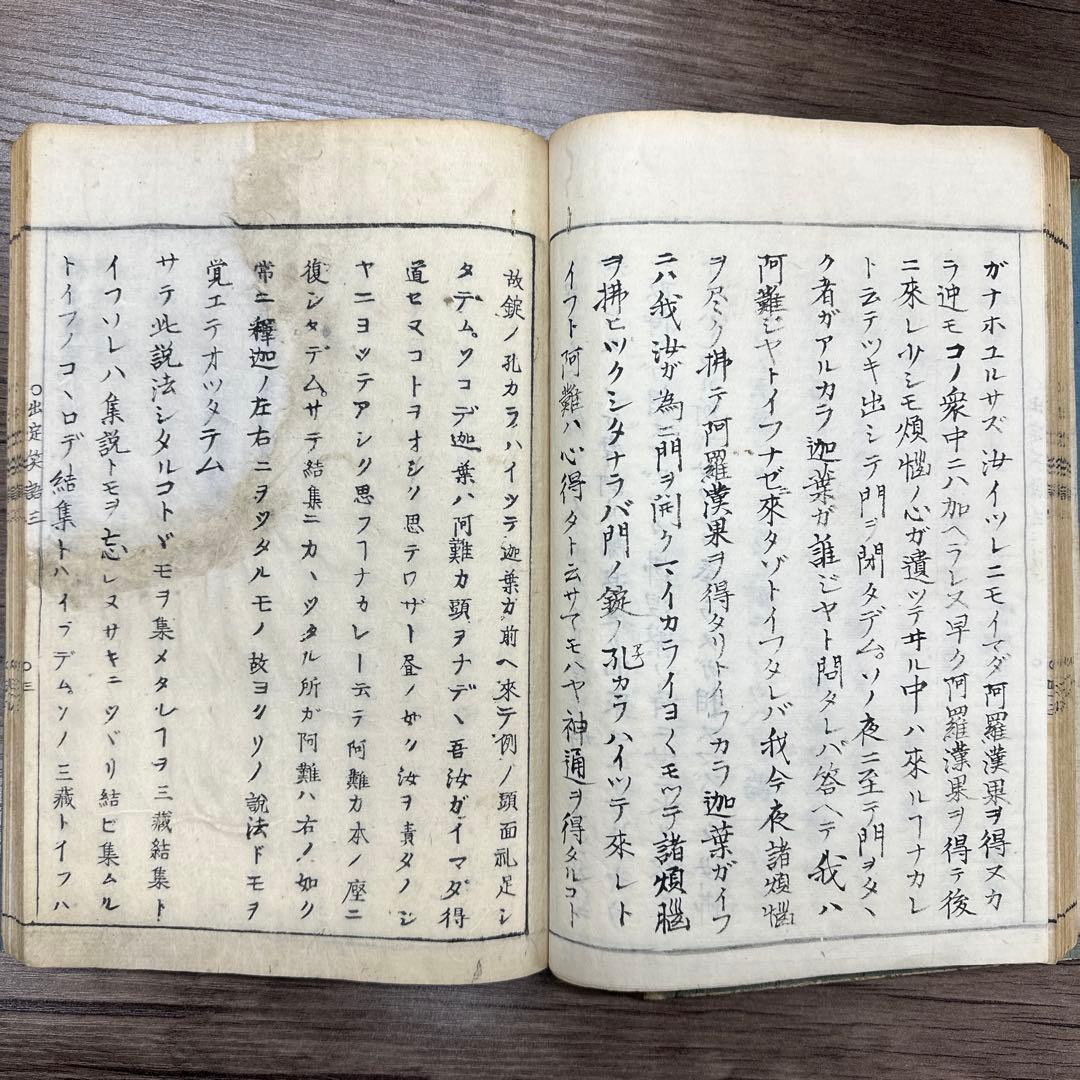 ガナホユルサズ汝イツレニモイマダ阿羅漢果ヲ得ヌカ
ラ迚モコノ衆中ニハ加ヘラレヌ早ク阿羅漢果ヲ得テ後
ニ來レ少シモ煩惱ノ心ガ遺ツテヰル中ハ來ルヿナカレ
ト云テツキ出シテ門ヲ閉タデム。ソノ夜ニ至テ門ヲタヽ
ク者ガアルカラ迦葉ガ誰ジヤト問タレバ答ヘテ我ハ
阿難ジヤトイフナゼニ來タゾトイフタレバ我今夜諸煩惱
ヲ尽ク拂テ阿羅漢果ヲ得タリトイフカラ迦葉ガイフ
ニハ我汝ガ為ニ門ヲ開クマイカライヨ〱モツテ諸煩腦
ヲ拂ヒツクシタナラバ門ノ錠ノ孔カラハイツテ來レト
イフト阿難ハ心得タト云サテモハヤ神通ヲ得タルコト
故錠ノ孔カラハイツテ迦葉ガ前ヘ來テ例ノ頭面礼足シ
タデム。ソコデ迦葉ハ阿難カ頭ヲナデヽ吾汝ガイマダ得
道セマコトヲオシク思テワザト昼ノ如ク汝ヲ責タノシ
ヤニヨツテアシク思フヿナカレト云テ阿難カ本ノ座ニ
復シタデム。サテ結集ニカヽツタル所ガ阿難ハ右ノ如ク
常ニ釋迦ノ左右ニヲツタルモノ故ヨクソノ説法ドモヲ
覚エテオツタテム
サテ此説法シタルコトドモヲ集メタルヿヲ三藏結集ト
イフソレハ集説トモヲ忘レヌサキニツバリ結ビ集ムル
トイフノコヽロデ結集トハイフデム。ソノ三藏トイフハ
〇出定笑語三
〇三